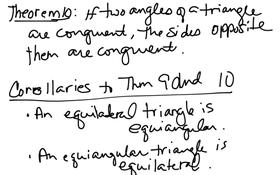 Theorem 10: If two angles of a triangle
are congruent, the sides opposite
them are congruent.
Corollaries to Thm 9 and 10
• An equilateral triangle is
equiangular.
• An equiangular triangle is
equilateral.